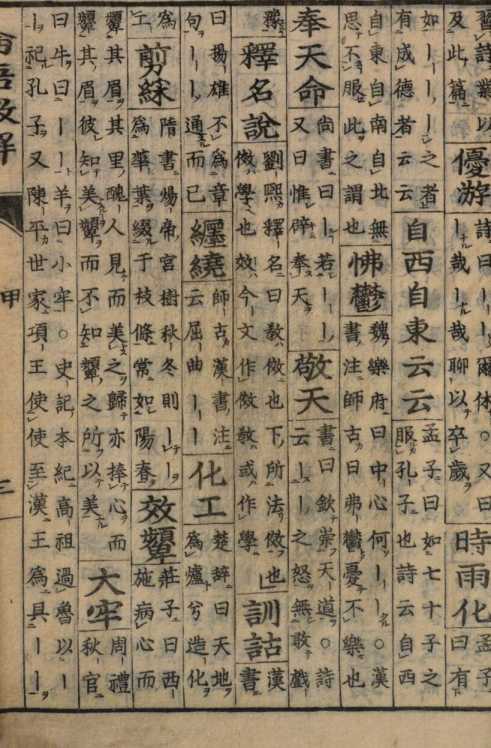 詩業以
及此篇
優游
詩曰——爾休○又曰
——哉——哉聊以卒歲
時雨化
孟子
曰有下
如————之者
有成德者云云
自西自東云云
孟子曰如七十子之
服孔子也詩云自西
自東自南自北無
思不服此之謂也
怫鬱
魏樂府曰中心何——○漢
書注師古曰弗鬱憂不樂也
奉天命
尚書曰——若———
又曰惟辟奉天
敬天
書曰欽崇天道○詩
云——之怒無敢戲
豫
釋名說
劉熙釋名曰敎傚也下所法傚
傚學也效今文作傚敎或作學
也
訓詁
漢
書
曰揚雄不爲章
句——通而已
纏繞
師古漢書注
云屈曲——
化工
楚辭曰天地
爲爐兮造化
爲
工
剪綵
隋書煬帝宮樹秋冬則——
爲華葉綴于枝條常如陽春
效顰
莊子曰西
施病心而
顰其眉其里醜人見而美之歸亦捧心而
顰其眉彼知美顰而不知顰之所以美
大牢
周禮
秋官
曰牛曰——羊曰小牢○史記本紀高祖過魯以——
祀孔子又陳平世家項王使使至漢王爲具——
甲
三